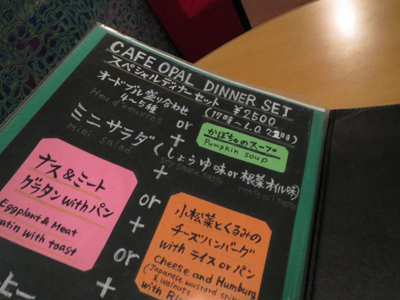 CAFE OPAL DINNER SET
スペシャルディナーセット ¥2500
オードブル盛り合わせ (17時～L.O.22時)
4～5種
+
かぼちゃのスープ
Pumpkin soup
ミニサラダ(しょうゆ味or根菜オイル味)
mini salad
+
ナス&ミート
グラタンwithパン
Eggplant & Meat
with toast
or
+
or
+
小松菜とくるみの
チーズハンバーグ
with ライス or パン
Cheese and Humburg
(Japanese mustard
& walnuts
with
ヒー